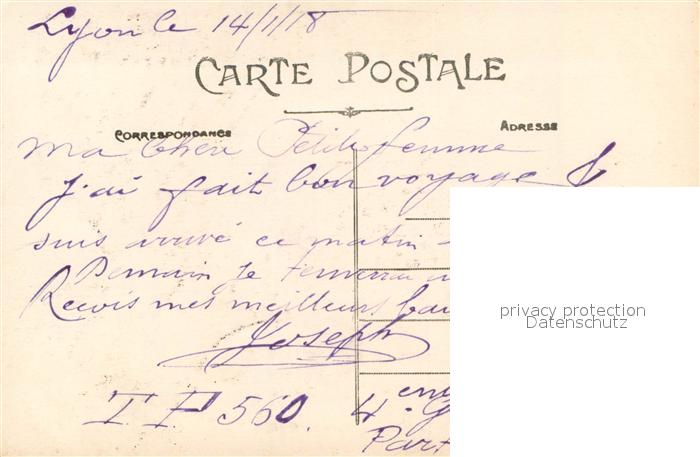 Lyon le 14/1/18
CARTE POSTALE
CORRESPONDANCE
ADRESSE
Ma Chere Petite femme
J'ai fait bon voyage J
suis arrivé ce matin
Demain je
Recois mes meilleurs bai
Joseph
T P 560.
4
Part
privacy protection
Datenschutz